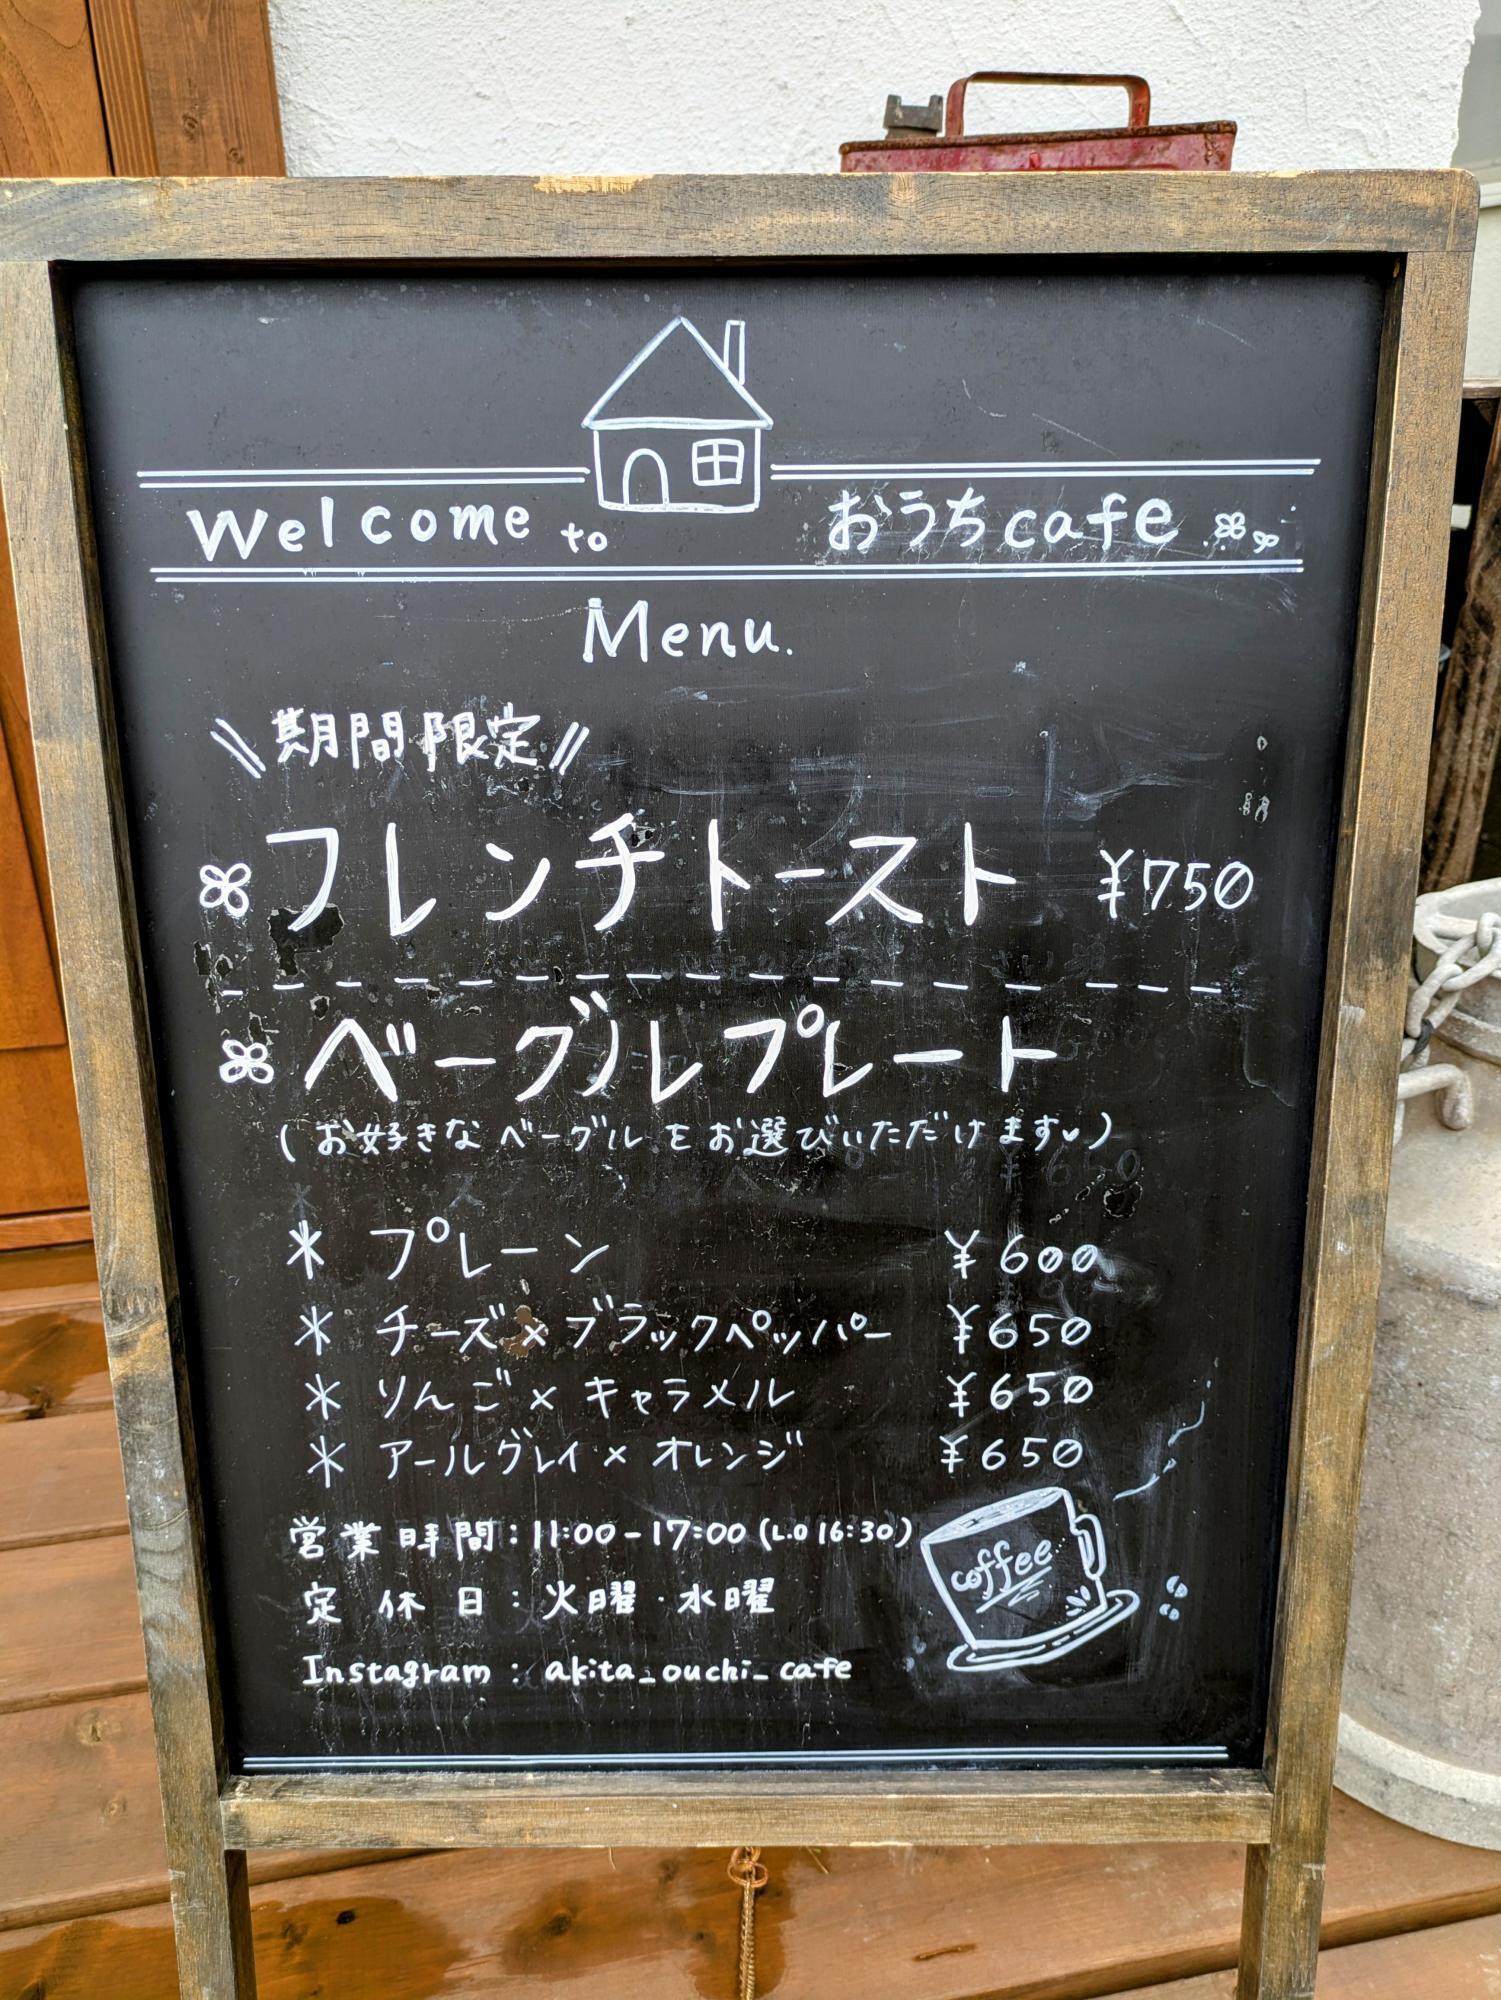 Welcome to おうちcafe
Menu.
\\期間限定//
フレンチトースト ¥750
ベーグルプレート
(お好きなベーグルをお選びいただけます♥)
* プレーン ¥600
* チーズ×ブラックペッパー ¥650
* りんご×キャラメル ¥650
* アールグレイ×オレンジ ¥650
営業時間:11:00-17:00(L.O 16:30)
定休日:火曜・水曜
Instagram:akita_ouchi_cafe
coffee